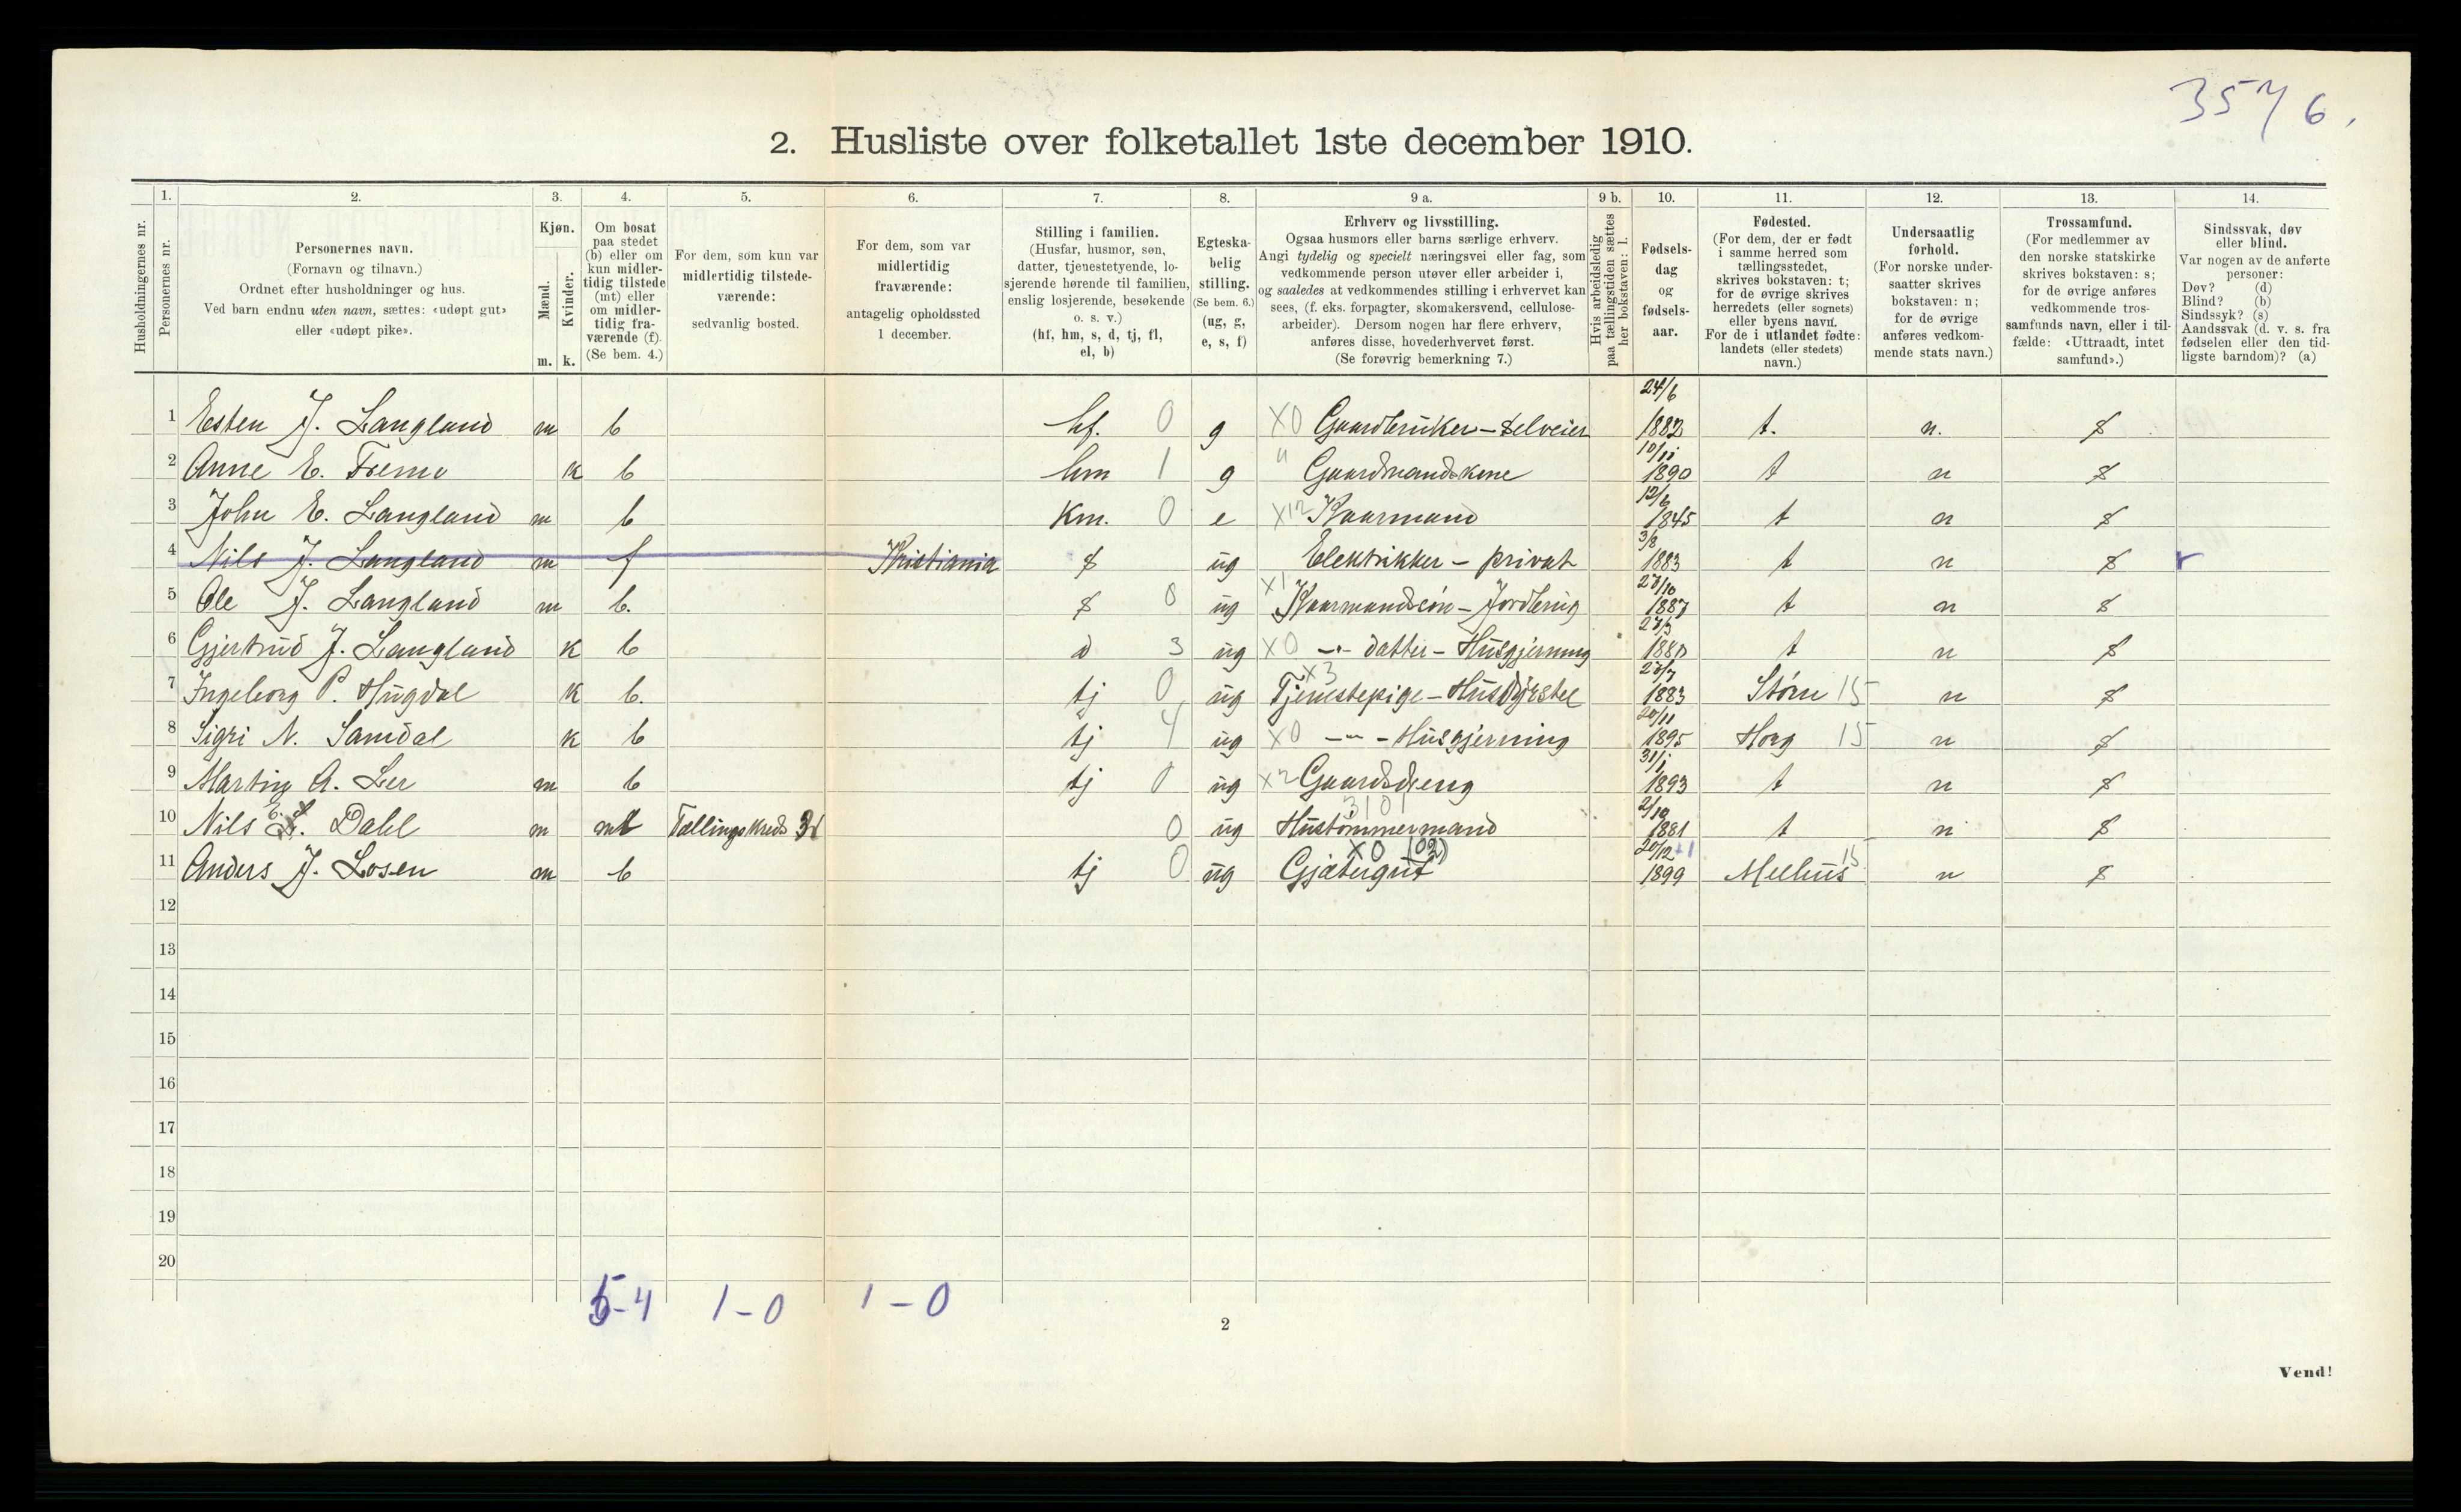 3576.
2. Husliste over folketallet 1ste december 1910.
Husholdningernes nr.
1. Personernes nr.
2. Personernes navn. (Fornavn og tilnavn.) Ordnet efter husholdninger og hus. Ved barn endnu uten navn, sættes: «udøpt gut» eller «udøpt pike».
3. Kjøn. Mænd. m. Kvinder. k.
4. Om bosat paa stedet (b) eller om kun midlertidig tilstede (mt) eller om midlertidig fraværende (f). (Se bem. 4.)
5. For dem, som kun var midlertidig tilstedeværende: sedvanlig bosted.
6. For dem, som var midlertidig fraværende: antagelig opholdssted 1 december.
7. Stilling i familien. (Husfar, husmor, søn, datter, tjenestetyende, losjerende hørende til familien, enslig losjerende, besøkende o. s. v.) (hf, hm, s, d, tj, fl, el, b)
8. Egteskabelig stilling. (Se bem. 6.) (ug, g, e, s, f)
9 a. Erhverv og livsstilling. Ogsaa husmors eller barns særlige erhverv. Angi tydelig og specielt næringsvei eller fag, som vedkommende person utøver eller arbeider i, og saaledes at vedkommendes stilling i erhvervet kan sees, (f. eks. forpagter, skomakersvend, cellulosearbeider). Dersom nogen har flere erhverv, anføres disse, hovederhvervet først. (Se forøvrig bemerkning 7.)
9 b. Hvis arbeidsledig paa tællingstiden sættes her bokstaven: l.
10. Fødselsdag og fødselsaar.
11. Fødested. (For dem, der er født i samme herred som tællingsstedet, skrives bokstaven: t; for de øvrige skrives herredets (eller sognets) eller byens navn. For de i utlandet fødte: landets (eller stedets) navn.)
12. Undersaatlig forhold. (For norske undersaatter skrives bokstaven: n; for de øvrige anføres vedkommende stats navn.)
13. Trossamfund. (For medlemmer av den norske statskirke skrives bokstaven: s; for de øvrige anføres vedkommende trossamfunds navn, eller i tilfælde: «Uttraadt, intet samfund».)
14. Sindssvak, døv eller blind. Var nogen av de anførte personer: Døv? (d) Blind? (b) Sindssyk? (s) Aandssvak (d. v. s. fra fødselen eller den tidligste barndom)? (a)
1 Esten J. Langland m b hf. 0 g X0 Gaardbruker - Selveier 24/6 1882 t. n. s
2 Anne E. Fremo k b hm 1 g " Gaardmandskone 10/11 1890 t n s
3 John E. Langland m b Km. 0 e X12 Kaarmand 12/6 1845 t n s
4 Nils J. Langland m f Kristiania s ug Elektrikker - privat 3/8 1883 t n s r
5 Ole J. Langland m b. s 0 ug X1 Kaarmandssön - Jordbrug 1887 t n s
6 Gjertrud J. Langland k b d 3 ug X0 -"- datter - Husgjerning t n s
7 Ingeborg P. Hugdal k b. tj 0 ug X3 Tjenestepige - Husdyrstel 1883 Støren 15 n s
8 Sigri N. Samdal k b tj 4 ug X0 -"- - Husgjerning 20/11 1895 Horg 15 n s
9 Martin A. Ler m b tj 0 ug X2 Gaardsdreng 31/1 1893 t n s
10 Nils E. Dahl m mt Tællingskreds 0 ug 3101 Hustømmermand 2/10 1881 t n s
11 Anders J. Losen m b tj 0 ug X0 (02) Gjætergut 20/12 +1 1899 Melhus 15 n s
12
13
14
15
16
17
18
19
20
5-4 1-0 1-0
2
Vend!